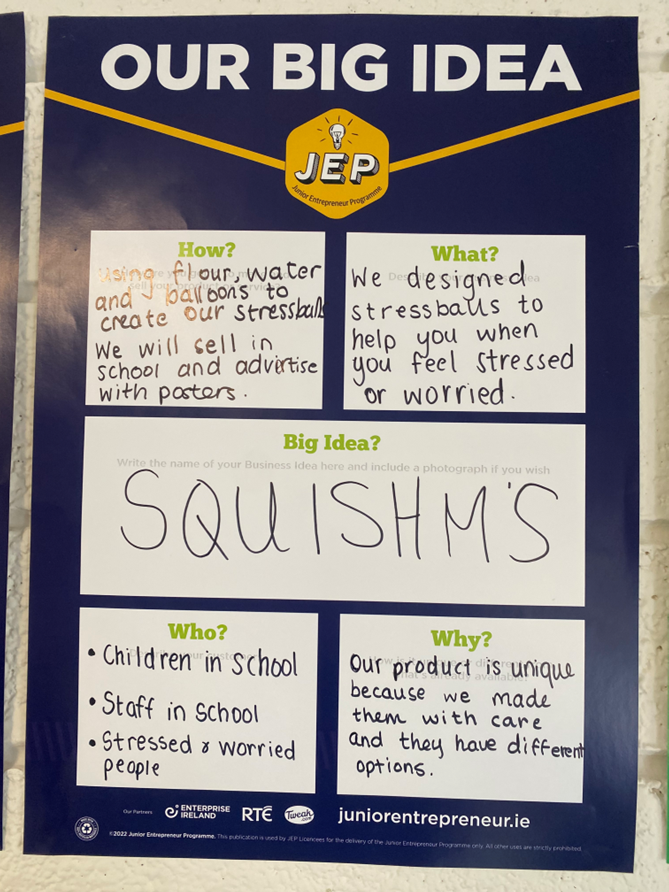 OUR BIG IDEA
JEP
Junior Entrepreneur Programme
How?
using flour, water
and balloons to
create our stressballs
We will sell in
school and advertise
with posters.
What?
We designed
stressballs to
help you when
you feel stressed
or worried.
Big Idea?
Write the name of your Business Idea here and include a photograph if you wish
SQUISHM'S
Who?
• Children in School
• Staff in School
• Stressed & Worried
people
Why?
Our product is unique
because we made
them with care
and they have different
options.
Our Partners
ENTERPRISE
IRELAND
RTÉ
Tweak
.com
juniorentrepreneur.ie
©2022 Junior Entrepreneur Programme. This publication is used by JEP Licencees for the delivery of the Junior Entrepreneur Programme only. All other uses are strictly prohibited.